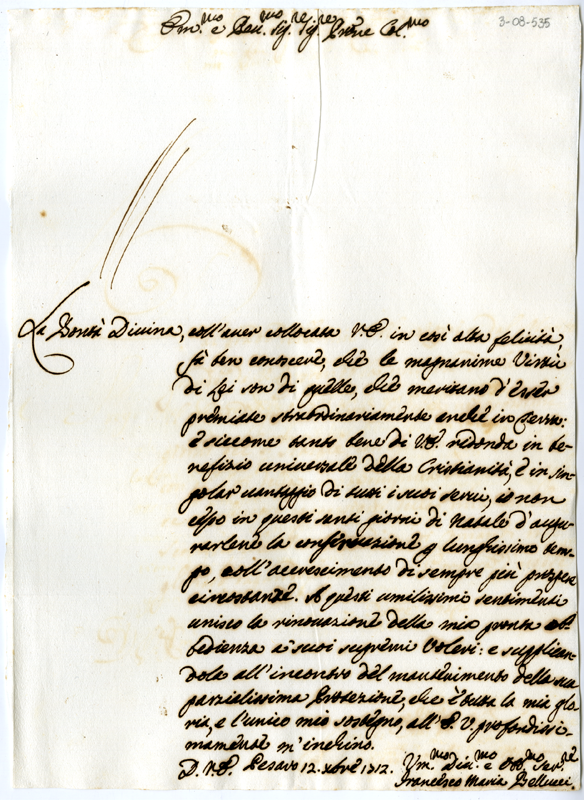 3-08-535
Em.mo e Rev.mo Sig.re Sig.re Prone Col.mo
La Bontà Divina, coll'auer collocata V.E. in così alta felicità,
fà ben conoscere, che le magnanime Virtù
di Lei son di quelle, che meritano d'esser
premiate straordinariamente anche in Terra:
e siccome tanto bene di V.E. redonda in be-
nefizio universale della Cristianità, e in sin-
golar vantaggio di tutti i suoi servi, io non
cesso in questi santi giorni di Natale d'augu-
rarlene la continuazione p lunghissimo tem-
po, coll'accrescimento di sempre più prospere
circostanze. A questi umilissimi sentimenti
unisco la rinovazione della mia pronta ob-
bedienza a' suoi supremi Voleri: e supplican-
dola all'incontro del mantenimento della sua
parzialissima Protezione, che è tutta la mia glo-
ria, e l'unico mio sostegno, all'E.V. profondissi-
mamente m'inchino.
D. V.E. Pesaro 12. Xbre 1712.
Um.mo Div.mo e Obb.mo Ser.re
Francesco Maria Bellucci.